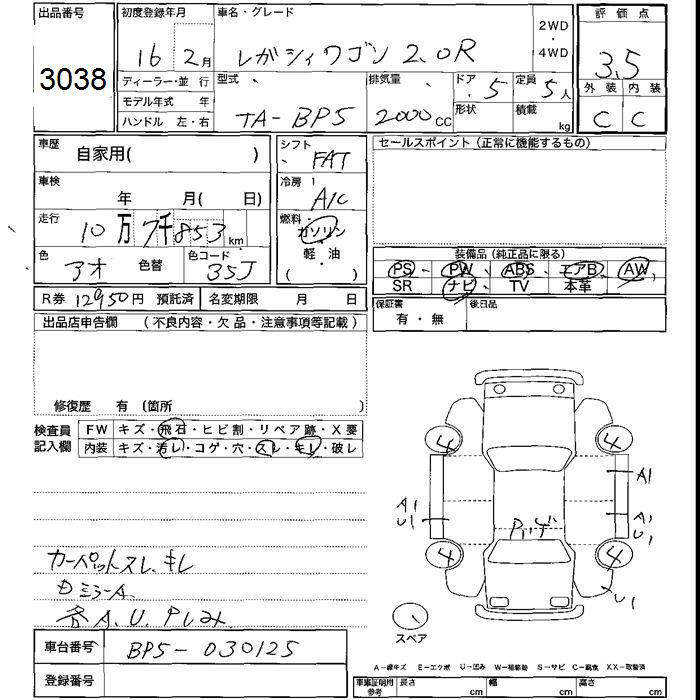 出品番号
3038
初度登録年月
16 2月
車名・グレード
レガシィワゴン 2.0R
2WD
・
4WD
評価点
3.5
外装 内装
C C
ディーラー・並 行
モデル年式 年
ハンドル 左・右
型式
TA-BP5
排気量
2000cc
ドア 5
形状
定員 5人
積載
kg
車歴
自家用( )
シフト
FAT
セールスポイント (正常に機能するもの)
車検
年 月( 日)
冷房
A/C
走行
10万7千853km
燃料
ガソリン
軽・油
( )
色
アオ
色替
色コード
35J
装備品 (純正品に限る)
PS PW ABS エアB AW
SR ナビ TV 本革
R券 12950円 預託済
名変期限 月 日
保証書
有・無
後日品
出品店申告欄 (不良内容・欠品・注意事項等記載)
修復歴 有 〔箇所 〕
検査員
記入欄
FW キズ・飛石・ヒビ割・リペア跡・X要
内装 キズ・汚レ・コゲ・穴・スレ・キレ・破レ
カーペットスレ、キレ
各A.U.
4 4
A1
A1
U1
A1
U1
4 4
U1
スペア
車台番号 BP5-030125
登録番号
A−線キズ E−エクボ U−凹み W−補修跡 S−サビ C−腐食 XX−取替済
車庫証明用
参考
長さ cm
幅 cm
高さ cm